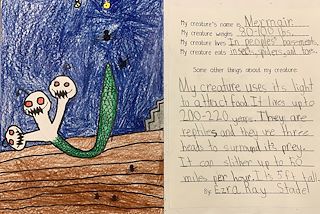 My creature's name is Mermair.
My creature weighs 80-100 lbs.
My creature lives In peoples' basements.
My creature eats insects, spiders, and
Some other things about my creature:
My creature uses its light
to attract food. It lives up to
200-220 years. They are
reptiles and they use three
heads to surround its prey.
It can slither up to 50
miles per hour. It is 5 ft tall.
By: Ezra Ray Stadel